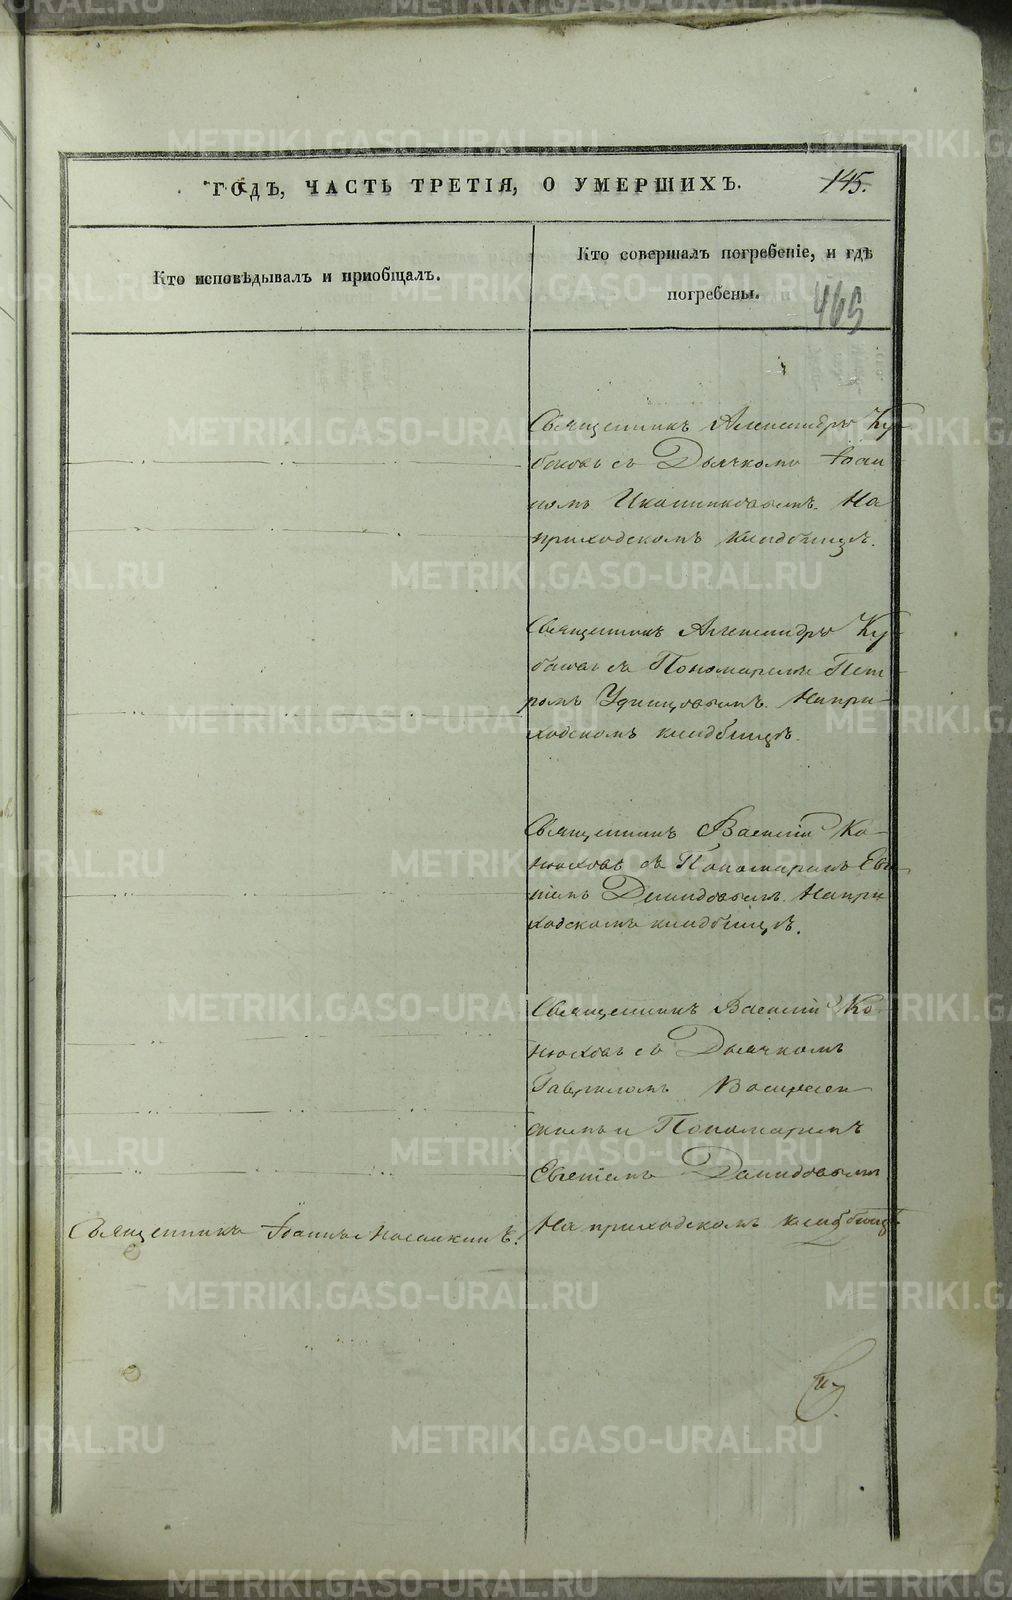 ГОДЪ, ЧАСТЬ ТРЕТІЯ, О УМЕРШИХЪ. 145.
Кто исповѣдывалъ и пріобщалъ.
Кто совершалъ погребеніе, и гдѣ
погребены.
465
Священникъ Александръ Ку-
баковъ съ Дьячкомъ Іоан
номъ Иконниковымъ. На
приходскомъ кладбищѣ.
Священникъ Александръ Ку-
баковъ съ Пономаремъ Пет
ромъ Удинцовымъ. На при-
ходскомъ кладбищѣ.
Священникъ Василій Ко-
нюховъ съ Пономаремъ Евсѣ
ніемъ Демидовымъ. На при
ходскомъ кладбищѣ.
Священникъ Василій Ко
нюховъ съ Дьячкомъ
Гавриломъ Воскресен
скимъ и Пономаремъ
Демидовымъ
Священникъ Іоаннъ
На приходскомъ кладбищѣ
METRIKI.GASO-URAL.RU